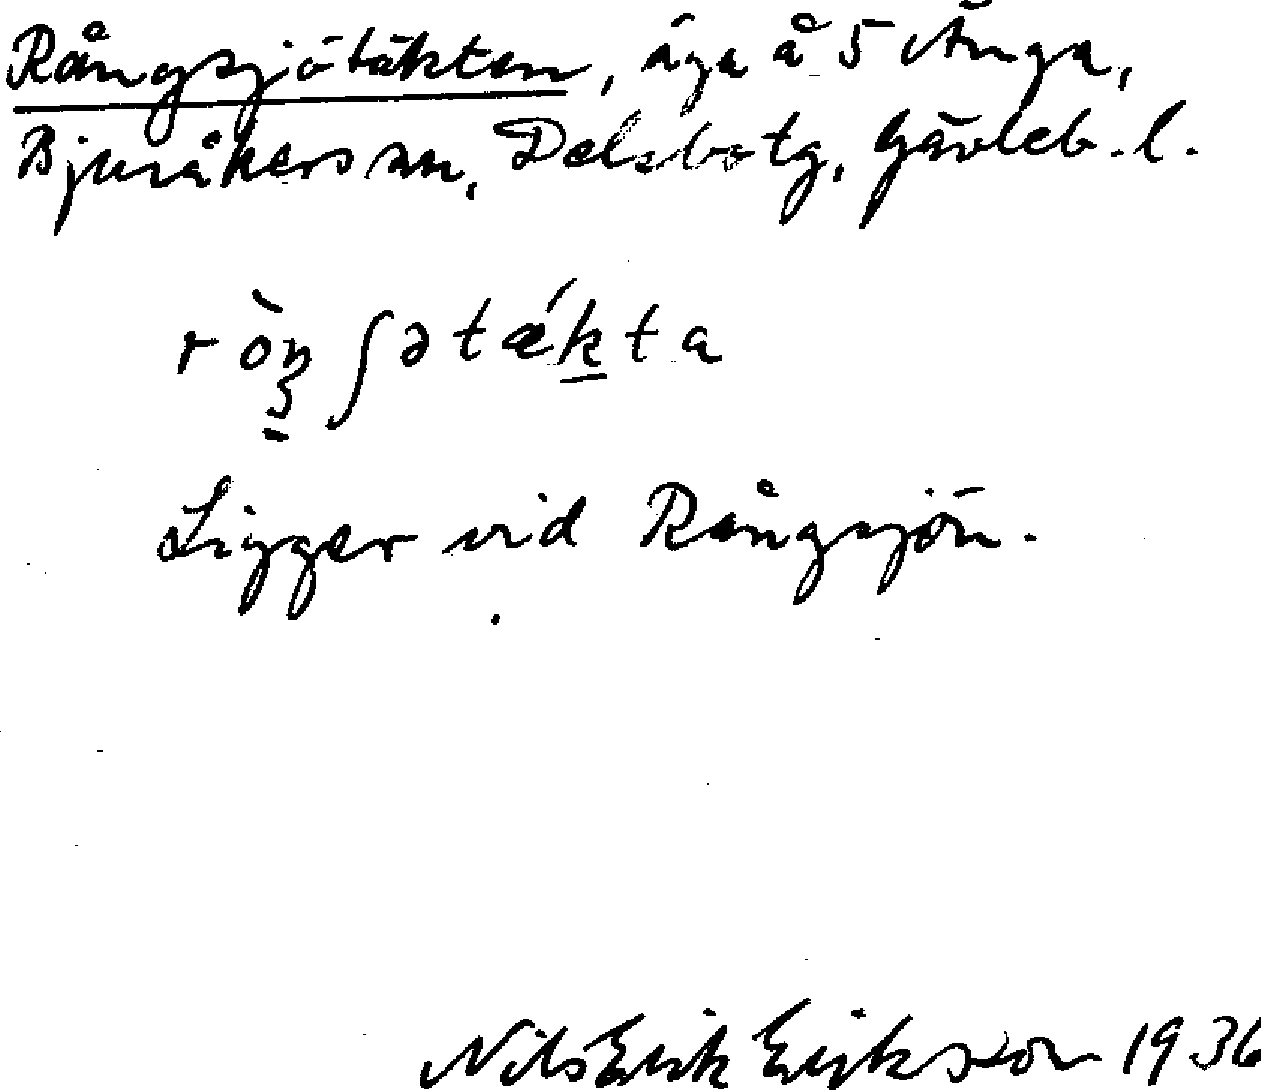 Rångsjötäkten, äga å 5 Änga,
Bjuråkers sn, Delsbo tg, Gävleb. l.
ròŋʃətǽkta
Ligger vid Rångsjön.
Nils Erik Eriksson 1936